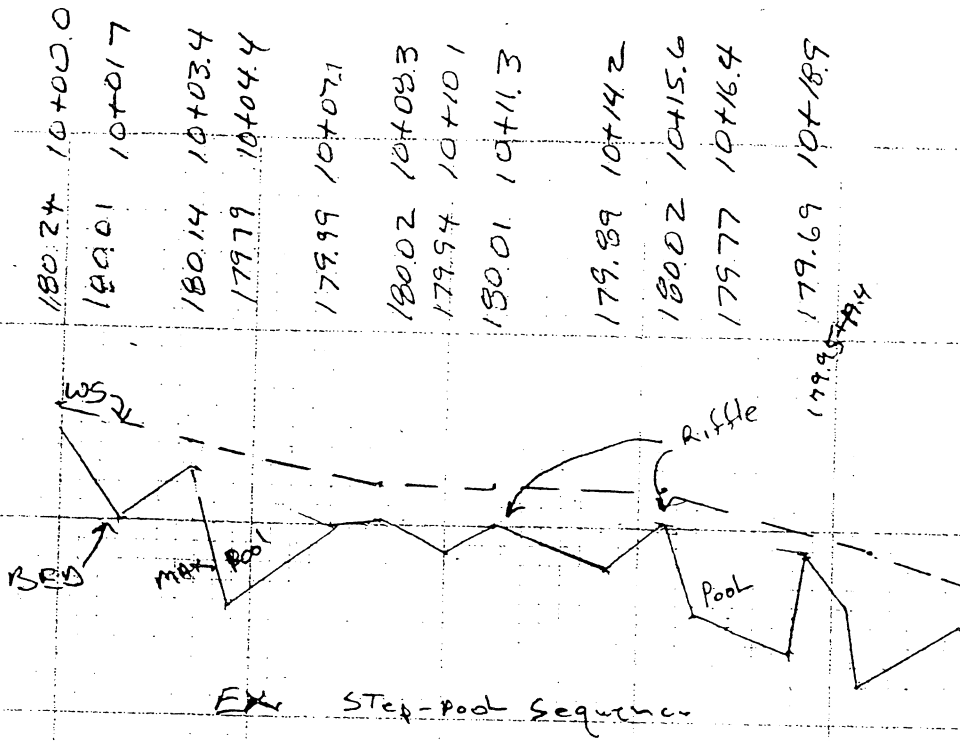 10+00.0
10+01.7
10+03.4
10+04.4
10+07.1
10+08.3
10+10.1
10+11.3
10+14.2
10+15.6
10+16.4
10+18.9
180.24
180.01
180.14
179.79
179.99
180.02
179.94
180.01
179.89
180.02
179.77
179.69
WS
Riffle
BED
MAX Pool
Pool
Ex. Step-pool Sequence